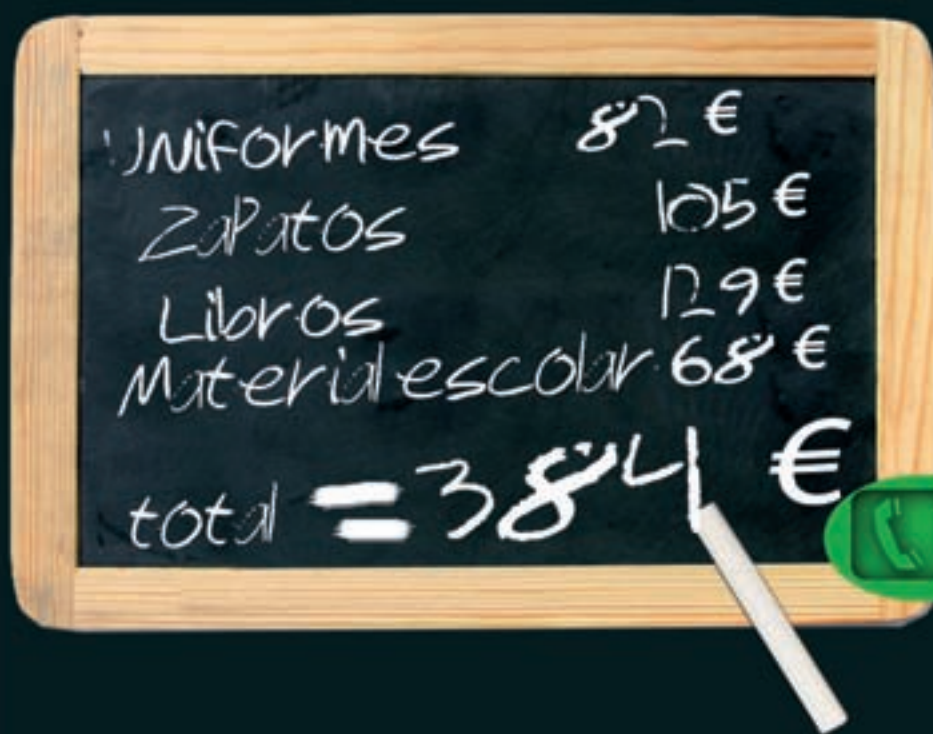 UNiformes 82 €
Zapatos 105 €
Libros 129 €
Material escolar 68 €
total = 384 €